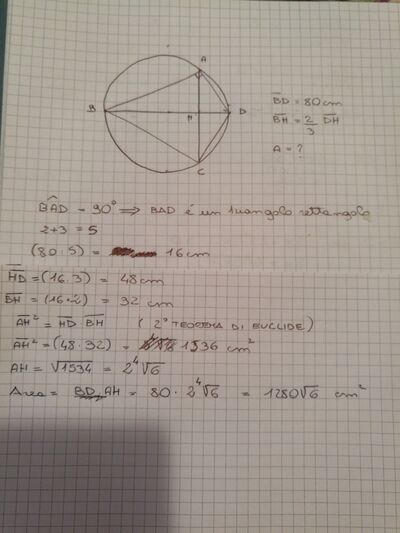 A
B
H
D
C
BD = 80 cm
BH = 2/3 DH
A = ?
BÂD = 90° ⟹ BAD é un triangolo rettangolo
2+3 = 5
(80 : 5) = 16 cm
HD = (16 · 3) = 48 cm
BH = (16 · 2) = 32 cm
AH² = HD · BH ( 2° TEOREMA DI EUCLIDE )
AH² = (48 · 32) = 1536 cm²
AH = √1534 = 2⁴√6
Area = BD · AH = 80 · 2⁴√6 = 1280√6 cm²